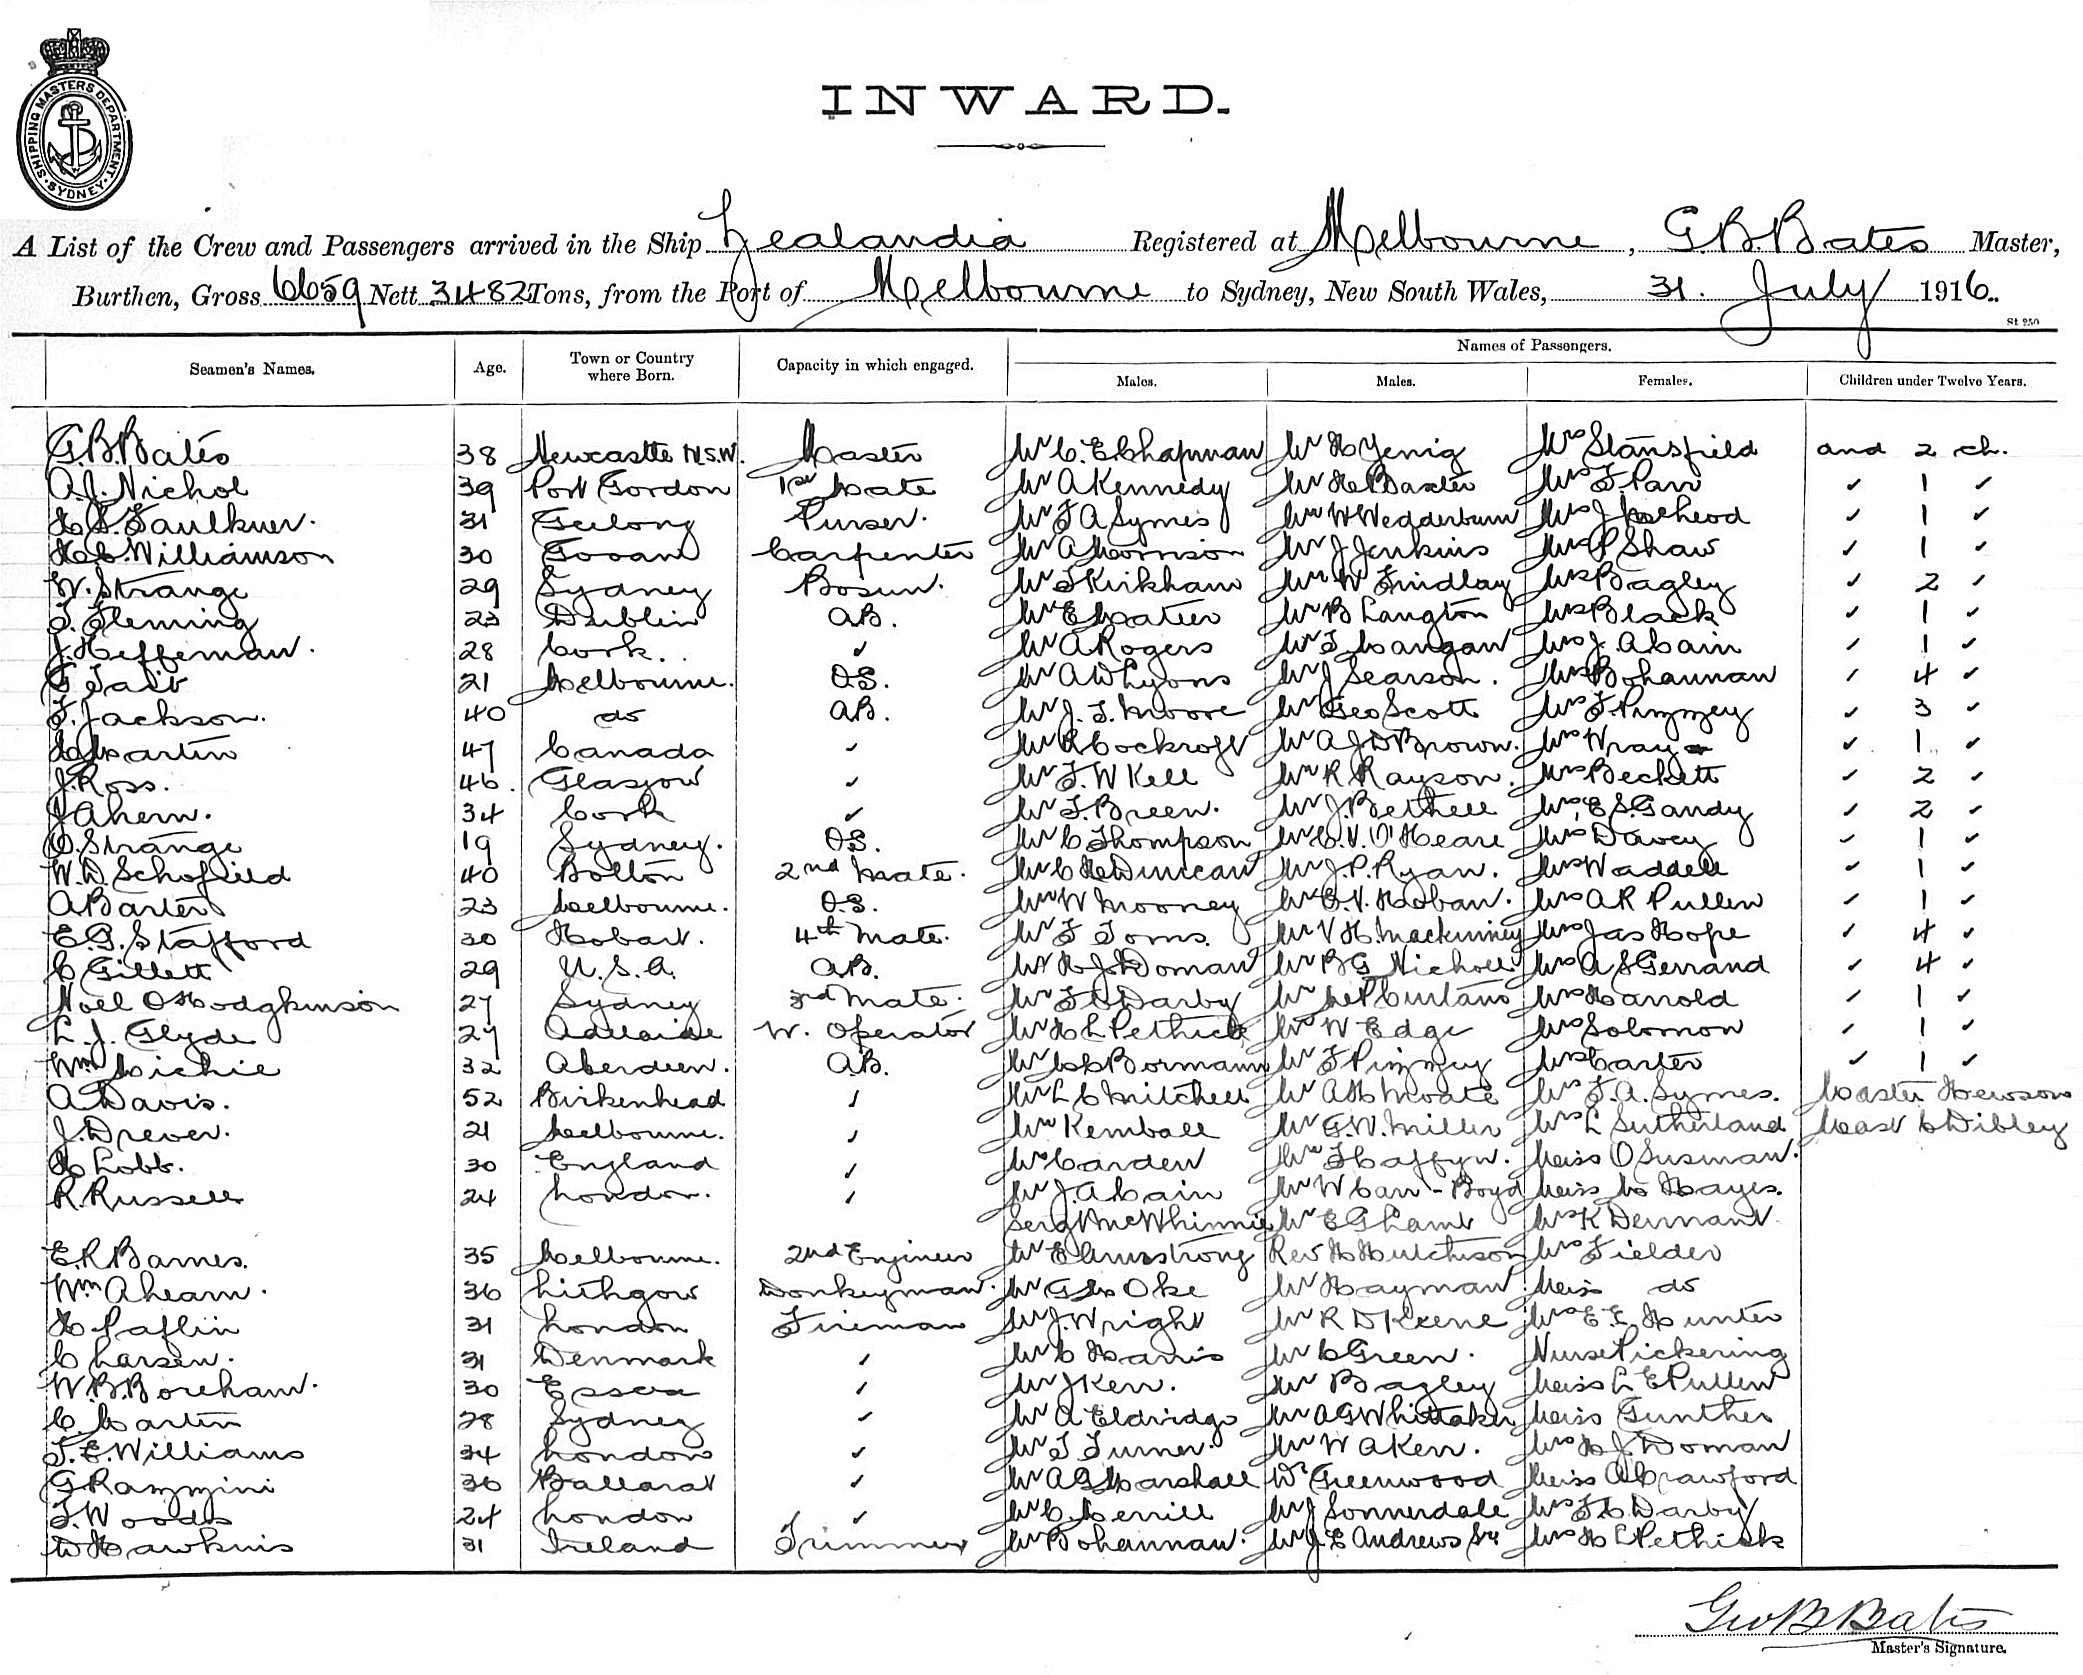 SHIPPING MASTERS DEPARTMENT. SYDNEY.
INWARD.
A List of the Crew and Passengers arrived in the Ship Zealandia Registered at Melbourne, G.B.Bates Master,
Burthen, Gross 6659 Nett 3482 Tons, from the Port of Melbourne to Sydney, New South Wales, 31. July 1916.
St 250
Names of Passengers.
Seamen's Names. Age. Town or Country where Born. Capacity in which engaged. Males. Males. Females. Children under Twelve Years.
G.B.Bates 38 Newcastle N.S.W. Master Mr C.E.Chapman Mr H Yenig Mrs Stansfield and 2 ch.
A.J.Nichol 39 Port Gordon 1st Mate Mr A Kennedy Mr H Baxter Mrs F. Parr " 1 "
H.S.Faulkner. 31 Geelong Purser. Mr F A Symes Mr W Wedderburn Mrs J " 1 "
H.C.Williamson 30 Carpenter Mr A Morrison Mr J Jenkins Mrs P Shaw " 1 "
W. Strange 29 Sydney Bosun. Mr T Kirkham Mr W Findlay Mrs Bagley " 2 "
T. Fleming 23 Dublin AB. Mr E Mr B Langton Mrs Black " 1 "
J. Heffernan. 28 Cork. " Mr A Rogers Mr T. Mangan Mrs J. A Cain " 1 "
G Tait 21 Melbourne. O.S. Mr A W Lyons Mr J Searson. Mrs Bohannan " 4 "
T. Jackson. 40 do AB. Mr J. T. Moore Mr Geo Scott Mrs F. Pizzey " 3 "
H Martin 47 Canada " Mr R Cockroft Mr A J D Brown. Mrs Wray " 1 "
J. Ross. 46. Glasgow " Mr F. W Kell Mr R Rayson. Mrs Beckett " 2 "
J Ahern. 34 Cork " Mr T. Breen. Mr J. Bethell Mrs E S. Gandy " 2 "
O. Strange 19 Sydney. O.S. Mr C Thompson Mr C. V. O'Heare Mrs Davey " 1 "
W. D. Schofield 40 Bolton 2nd Mate. Mr C H Duncan Mr J. P. Ryan. Mrs Waddell " 1 "
A Barter 23 Melbourne. O.S. Mr W Mooney Mr E. V. Hoban. Mrs A R Pullen " 1 "
E. G. Stafford 30 Hobart. 4th Mate. Mr F Toms. Mr V H. Mackinney Mrs Jas Hope " 4 "
C Gillett 29 U.S.A. AB. Mr H J Doman Mr B G Nicholls Mrs A S Gerrand " 4 "
Noel O Hodgkinson 27 Sydney 3rd Mate. Mr F C Darby Mr Mrs Harrold " 1 "
L. J. Glyde 27 Adelaide W. Operator Mr H L Pethick Mr W Edge Mrs Solomon " 1 "
Wm Michie 32 Aberdeen. AB. Mr Bormann Mr F Pizzey Mrs Carter " 1 "
A Davis. 52 Birkenhead " Mr L C Mitchell Mr A H Moate Mrs F. A. Symes. Master Hewson
J. Drever. 21 Melbourne. " Mr Kemball Mr G. W. Miller Mrs L Sutherland Mast C Dibley
H Lobb. 30 England " Mr Carden Mr T Haffyn. Miss O Susman.
R. Russell 24 London. " Mr J. A Cain Mr W Carr-Boyd Miss M Hayes.
Sergt McWhinnie Mr E G Lamb Mrs K Dennant
E. R Barnes. 35 Melbourne. 2nd Engineer Mr E Armstrong Rev H Hutchison Mrs Fielder
Wm Ahearn. 36 Lithgow Donkeyman. Mr G M Oke Mr Hayman Miss do
H Paflin 31 London Fireman Mr J. Wright Mr R D Keene Mrs E. E. Hunter
C Larsen. 31 Denmark " Mr C Harris Mr C Green. Nurse Pickering
W. B. Boreham. 30 Essex " Mr J Kerr. Mr Bagley Miss L E Pullen
C. Martin 28 Sydney " Mr A Eldridge Mr A G Whittaker Miss Gunther
T. E. Williams 34 London " Mr T Turner. Mr W A Kerr. Mrs H J Doman
G Razzini 36 Ballarat " Mr A G Marshall Wr Greenwood Miss A Crawford
T. Woods 24 London " Mr C. Merrill Mr J Sonnerdale Mrs F C Darby
W Hawkins 31 Ireland Trimmer Mr Bohannan. Mr J. E Andrews Snr Mrs H L Pethick
Geo B Bates
Master's Signature.